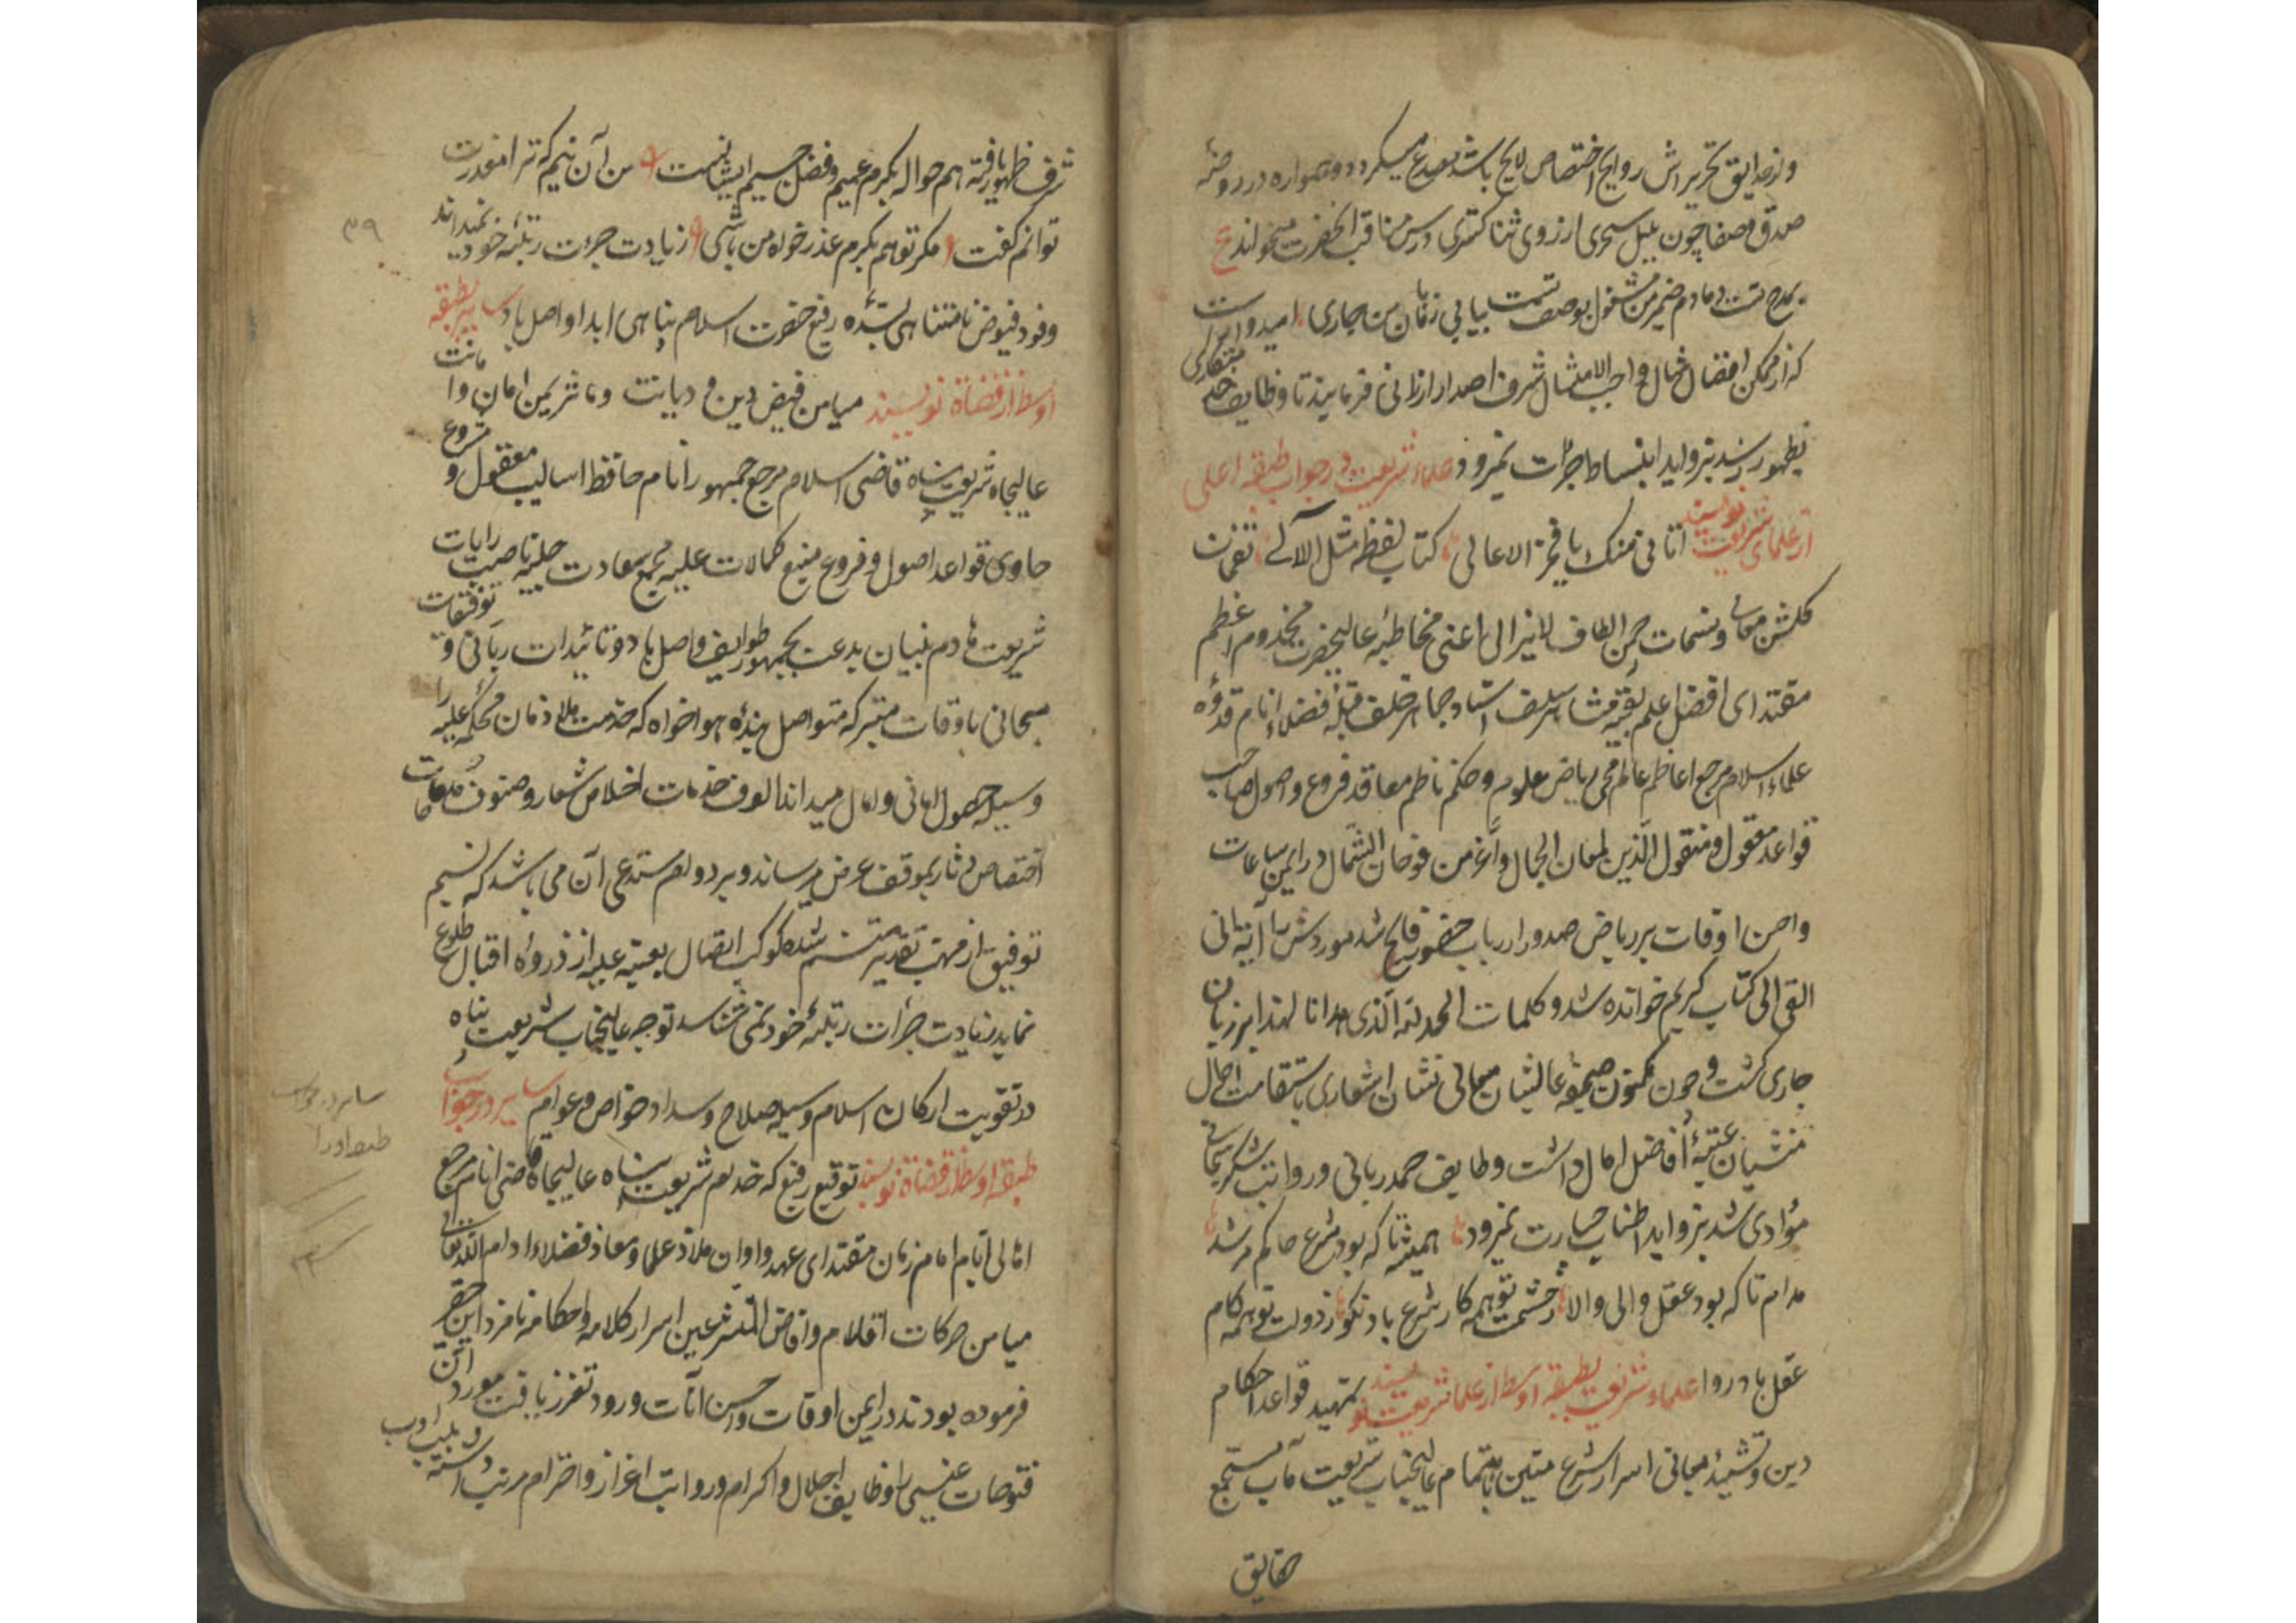 و از حدایق تحریراش روایح اختصاص لایح باشد مصدع میگردد و همواره در روضهٔ
صدق و صفا چون بلبل سحری ارزوی ثنا کتری درس مناقب انحضرت میخواند ع
بمدح تست دمادم ضمیر من مشغول بوصف تست بیاپی زبان من جاری امیدوار است
که از ممکن افضال مثال واجب الامتثال شرف اصدار ارزانی فرمایند تا وظایف خدمتکاری
بظهور رسد بزواید انبساط جرات نمیرود علماء شریعت در جواب طبقه اعلی
از علمای شریعت نویسند اتانی منک یا فخر الاعالی کتاب لفظه مثل اللآلی نفحات
گلشن معانی و نسمات چمن الطاف لایزالی اعنی مخاطبه عالیحضرت مخدوم اعظم
مقتدای افضل علم بقیه مشاهیر سلف استاد جماهیر خلف قبله فضلاء انام قدوه
علماء اسلام مرجع اعاظم عالم محیی ریاض علوم و حکم ناظم معاقد فروع و اصول صاحب
قواعد معقول و منقول الذین لمعان الجمال و اغر من فوحات الشمال در ایمن ساعات
و احسن اوقات بر ریاض صدور ارباب حضور فایح شد موردش را آیة انی
القی الی کتاب کریم خوانده شد و کلمات الحمد لله الذی هدانا لهذا بر زبان
جاری گشت و چون مکنون صحیفه عالیشان معالی نشان اشعاری باستقامت احوال
منشیان عتبهٔ افاضل امال داشت وظایف حمد ربانی و رواتب شکر سبحانی
مؤدی شد بزواید اطناب جسارت نمیرود همیشه تا که بود شرع حاکم مرشد
مدام تا که بود عقل والی والا ز حشمت تو همه کار شرع باد نکو ز دولت تو همه کام
عقل باد روا علماء شریعت بطبقه اوسط از علماء شریعت نویسند تمهید قواعد احکام
دین و تشیید معانی اسرار شرع متین باهتمام عالیجناب شریعت مآب مستجمع
حقایق
شرف ظهور یافته هم حواله بکرم عمیم و فضل جسیم ایشانست من آن نیم که ترا معذرت
توانم گفت مگر تو هم بکرم عذر خواه من باشی زیادت جرءت رتبهٔ خود نمیداند
وفود فیوض نامتناهی بسدّه رفیع حضرت اسلام پناهی ابدا واصل باد سایر بطبقه
اوسط از قضاة نویسند میامن فیض دین و دیانت و ماثر یمن امان و امانت
عالیجاه شریعت پناه قاضی اسلام مرجع جمهور انام حافظ اسالیب معقول و مشروع
حاوی قواعد اصول و فروع منبع کمالات علیه مجمع سعادت جلیه ناصب رایات
شریعت هادم بنیان بدعت بجمهور طوایف واصل باد و تائیدات ربانی و توفیقات
سبحانی باوقات متبرکه متواصل بنده هواخواه که خدمت ملازمان محکمه علیه را
وسیله حصول امانی و امال میداند الوف خدمات اخلاص شعار و صنوف
اختصاص دثار بموقف عرض میرساند و بر دوام مستدعی آن می باشد که نسیم
توفیق از مهب تقدیر متنسم شده کوکب اتصال بعتبه علیه از ذروه اقبال طلوع
نماید زیادت جرأت رتبهٔ خود نمی شناسد توجه عالیجناب شریعت پناه
در تقویت ارکان اسلام وسیله صلاح و سداد خواص و عوام سایر در جواب
طبقه اوسط از قضاة نویسند توقیع رفیع که خدام شریعت پناه عالیجاه قاضی انام مرجع
اهالی ایام امام زمان مقتدای عهد و اوان ملاذ علما و معاذ فضلاء ادام الله تعالی
میامن حرکات اقلام و افاض المتشرعین اسرار کلامه و احکامه نامزد این حقیر
فرموده بودند در ایمن اوقات و احسن آنات ورود تعزز یافت مورد آن
فتوحات غیبی را وظایف اجلال و اکرام و رواتب اعزاز و احترام مرتب داشته
۳۹
سایر در جواب